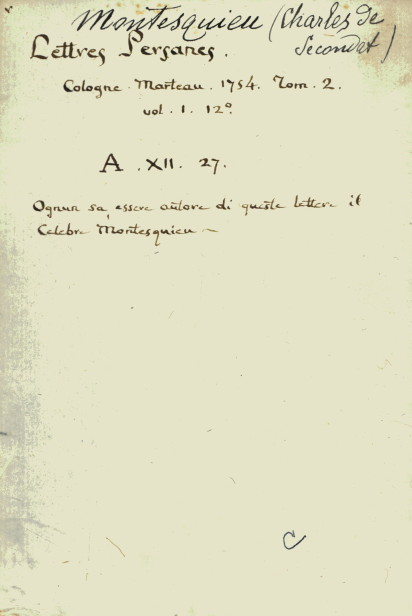 Montesquieu (Charles de
Secondat)
Lettres Persanes.
Cologne. Marteau. 1754. Tom. 2.
vol. 1. 12°.
A. XII. 27.
Ognun sa, essere autore di queste lettere il
Celebre Montesquieu ~
C